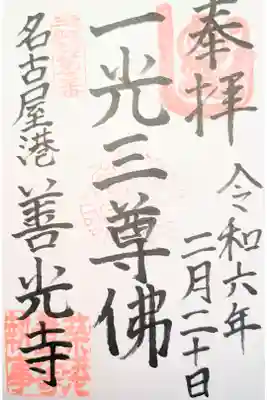 奉拝
令和六年
二月二十日
一光三尊佛
名古屋港 善光寺